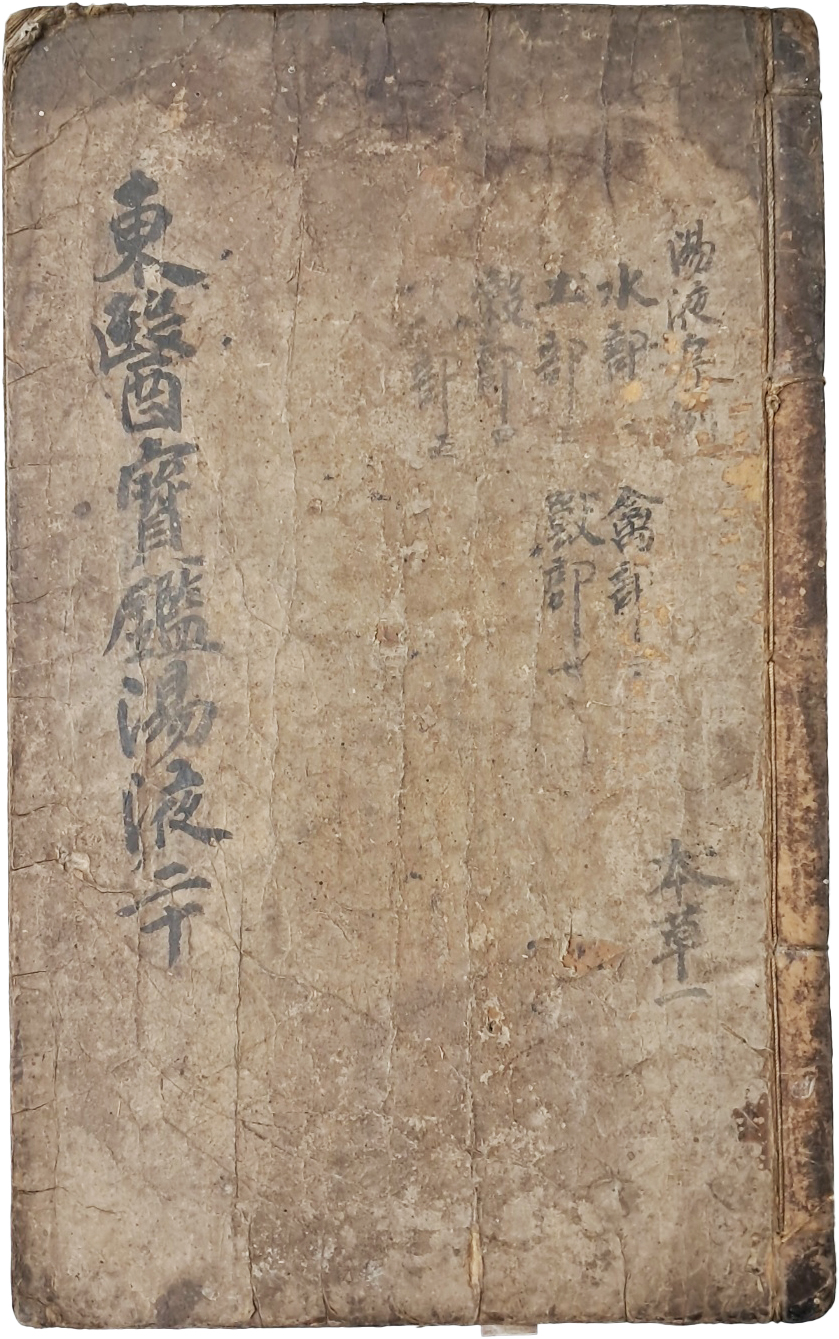 湯液序例
水部
土部
穀部四
部五
禽部
獸部廿
本草一
東醫寶鑑湯液二十